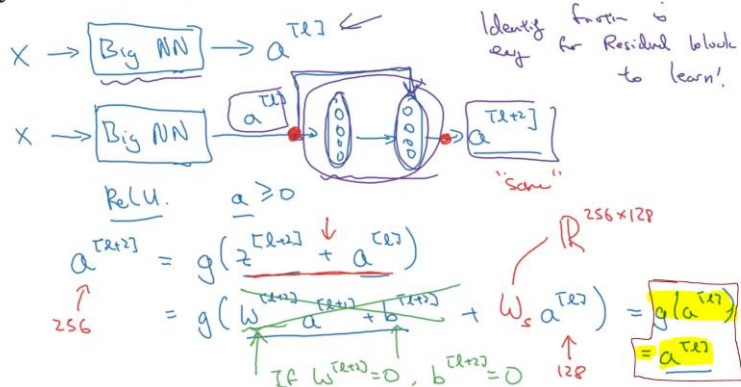 X → Big NN → a^[l]
Identity function is
easy for Residual block
to learn!
X → Big NN a^[l] → a^[l+2]
"same"
ReLU. a ≥ 0
a^[l+2] = g(z^[l+2] + a^[l])
ℝ^256×128
= g(W^[l+2] a^[l+1] + b^[l+2] + W_s a^[l]) = g(a^[l])
256
128
= a^[l]
If W^[l+2] = 0, b^[l+2] = 0